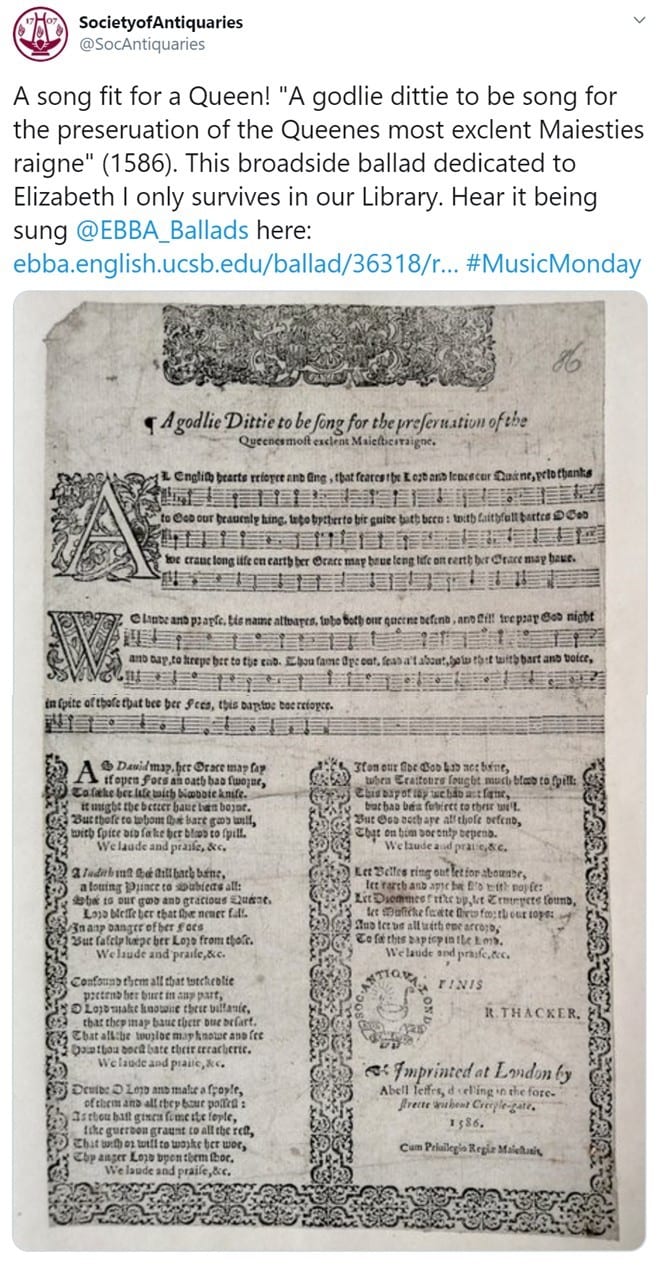 SocietyofAntiquaries
@SocAntiquaries
A song fit for a Queen! "A godlie dittie to be song for
the preseruation of the Queenes most exclent Maiesties
raigne" (1586). This broadside ballad dedicated to
Elizabeth I only survives in our Library. Hear it being
sung @EBBA_Ballads here:
ebba.english.ucsb.edu/ballad/36318/r... #MusicMonday
86
¶ A godlie Dittie to be song for the preseruation of the
Queenes most exclent Maiesties raigne.
AL English hearts reioyce and sing, that feares the Lord and loues our Quéene, yeld thanks
to God our heauenly king, who hytherto hir guide hath been: with faithfull hartes O God
we craue long life on earth her Grace may haue long life on earth her Grace may haue.
WE laude and prayse, his name allwayes, who doth our queene defend, and still we pray God night
and day, to keepe her to the end. Thou fame out, about, with hart and voice,
in spite of those that bee her Foes, this day we doe reioyce.
AS Dauid may, her Grace may say
if open Foes an oath had swore,
To seeke her life with bloodie knife,
it might the better haue been borne.
But those to whom she bare good will,
with spite did seeke her blood to spill.
We laude and praise, &c.
A Iudith iust she still hath béene,
a louing Prince to subiects all:
She is our good and gracious Quéene,
Lord blesse her that she neuer fall.
In any danger of her Foes
But safely kéepe her Lord from those.
We laude and praise, &c.
Confound them all that wickedlie
pretend her hurt in any part,
O Lord make knowne their villanie,
that they may haue their due desart.
That all the world may knowe and see
How thou doest hate their treacherie.
We laude and praise, &c.
Deuide O Lord and make a spoyle,
of them and all they haue possest:
As thou hast giuen some the foyle,
like guerdon graunt to all the rest,
That with or will to worke her woe,
Thy anger Lord vpon them shoe.
We laude and praise, &c.
If on our side God had not béene,
when Traitours sought much blood to spill:
This day of ioy we had not séene,
but had been subiect to their will.
But God doth aye all those defend,
That on him doe only depend.
We laude and praise, &c.
Let Belles ring out let ioy abound,
let earth and ayre be fild with noyse:
Let Drommes strike vp, let Trumpets sound,
let Musicke shew forth our ioyes:
And let vs all with one accord,
To this day ioy in the Lord.
We laude and praise, &c.
SOC. ANTIQVA. LONDON
FINIS
R. THACKER.
Imprinted at London by
Abell Ieffes, dwelling in the fore-
streete without Creeple-gate.
1586.
Cum Priuilegio Regiæ Maiestatis.